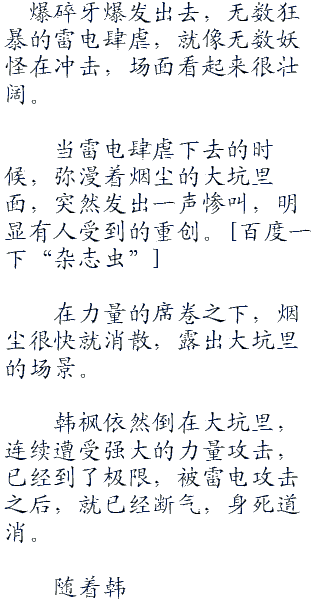 爆碎牙爆发出去，无数狂
暴的雷电肆虐，就像无数妖
怪在冲击，场面看起来很壮
阔。
当雷电肆虐下去的时
候，弥漫着烟尘的大坑里
面，突然发出一声惨叫，明
显有人受到的重创。[百度一
下“杂志虫”]
在力量的席卷之下，烟
尘很快就消散，露出大坑里
的场景。
韩枫依然倒在大坑里，
连续遭受强大的力量攻击，
已经到了极限，被雷电攻击
之后，就已经断气，身死道
消。
随着韩